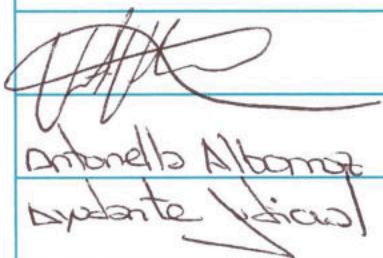 Antonella Albornoz
Ayudante Judicial